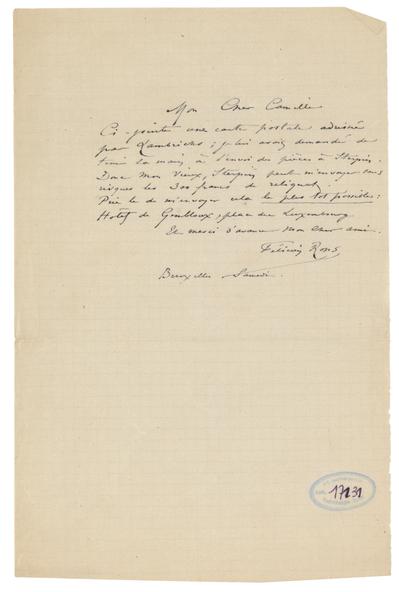 Mon Cher Camille
Ci-jointe une carte postale adressée
par Lambrichs ; je lui avais demandé de
tenir la main, à l'envoi des pièces à Sterpin.
Donc Mon vieux, Sterpin peut m'envoyer sans
risques les 300 francs de reliquat.
Prie le de m'envoyer cela le plus tot possible :
Hotel de Gembloux, place du Luxembourg
Et merci d'avance mon cher ami.
Félicien Rops
Bruxelles Samedi.
17231